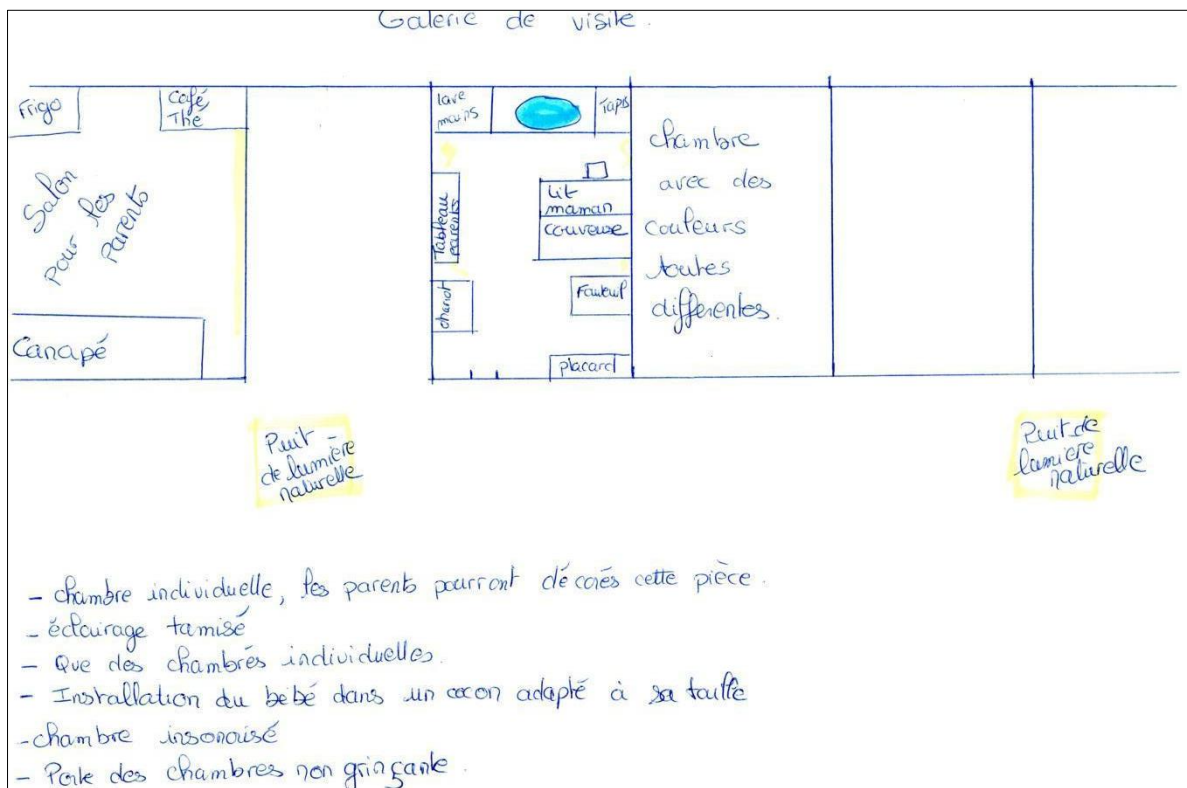 Galerie de visite.
Frigo
Café,
Thé
Salon
pour les
parents
Canapé
lave
mains
Tapis
Tableau
parents
chariot
Lit
maman
couveuse
Fauteuil
placard
chambre
avec des
couleurs
toutes
differentes.
Puit
de lumière
naturelle
Puit de
lumière
naturelle
- chambre individuelle, les parents pourront décorés cette pièce.
- éclairage tamisé
- Que des chambrés individuelles.
- Installation du bébé dans un cocon adapté à sa taille
- chambre insonorisé
- Porte des chambres non grinçante.